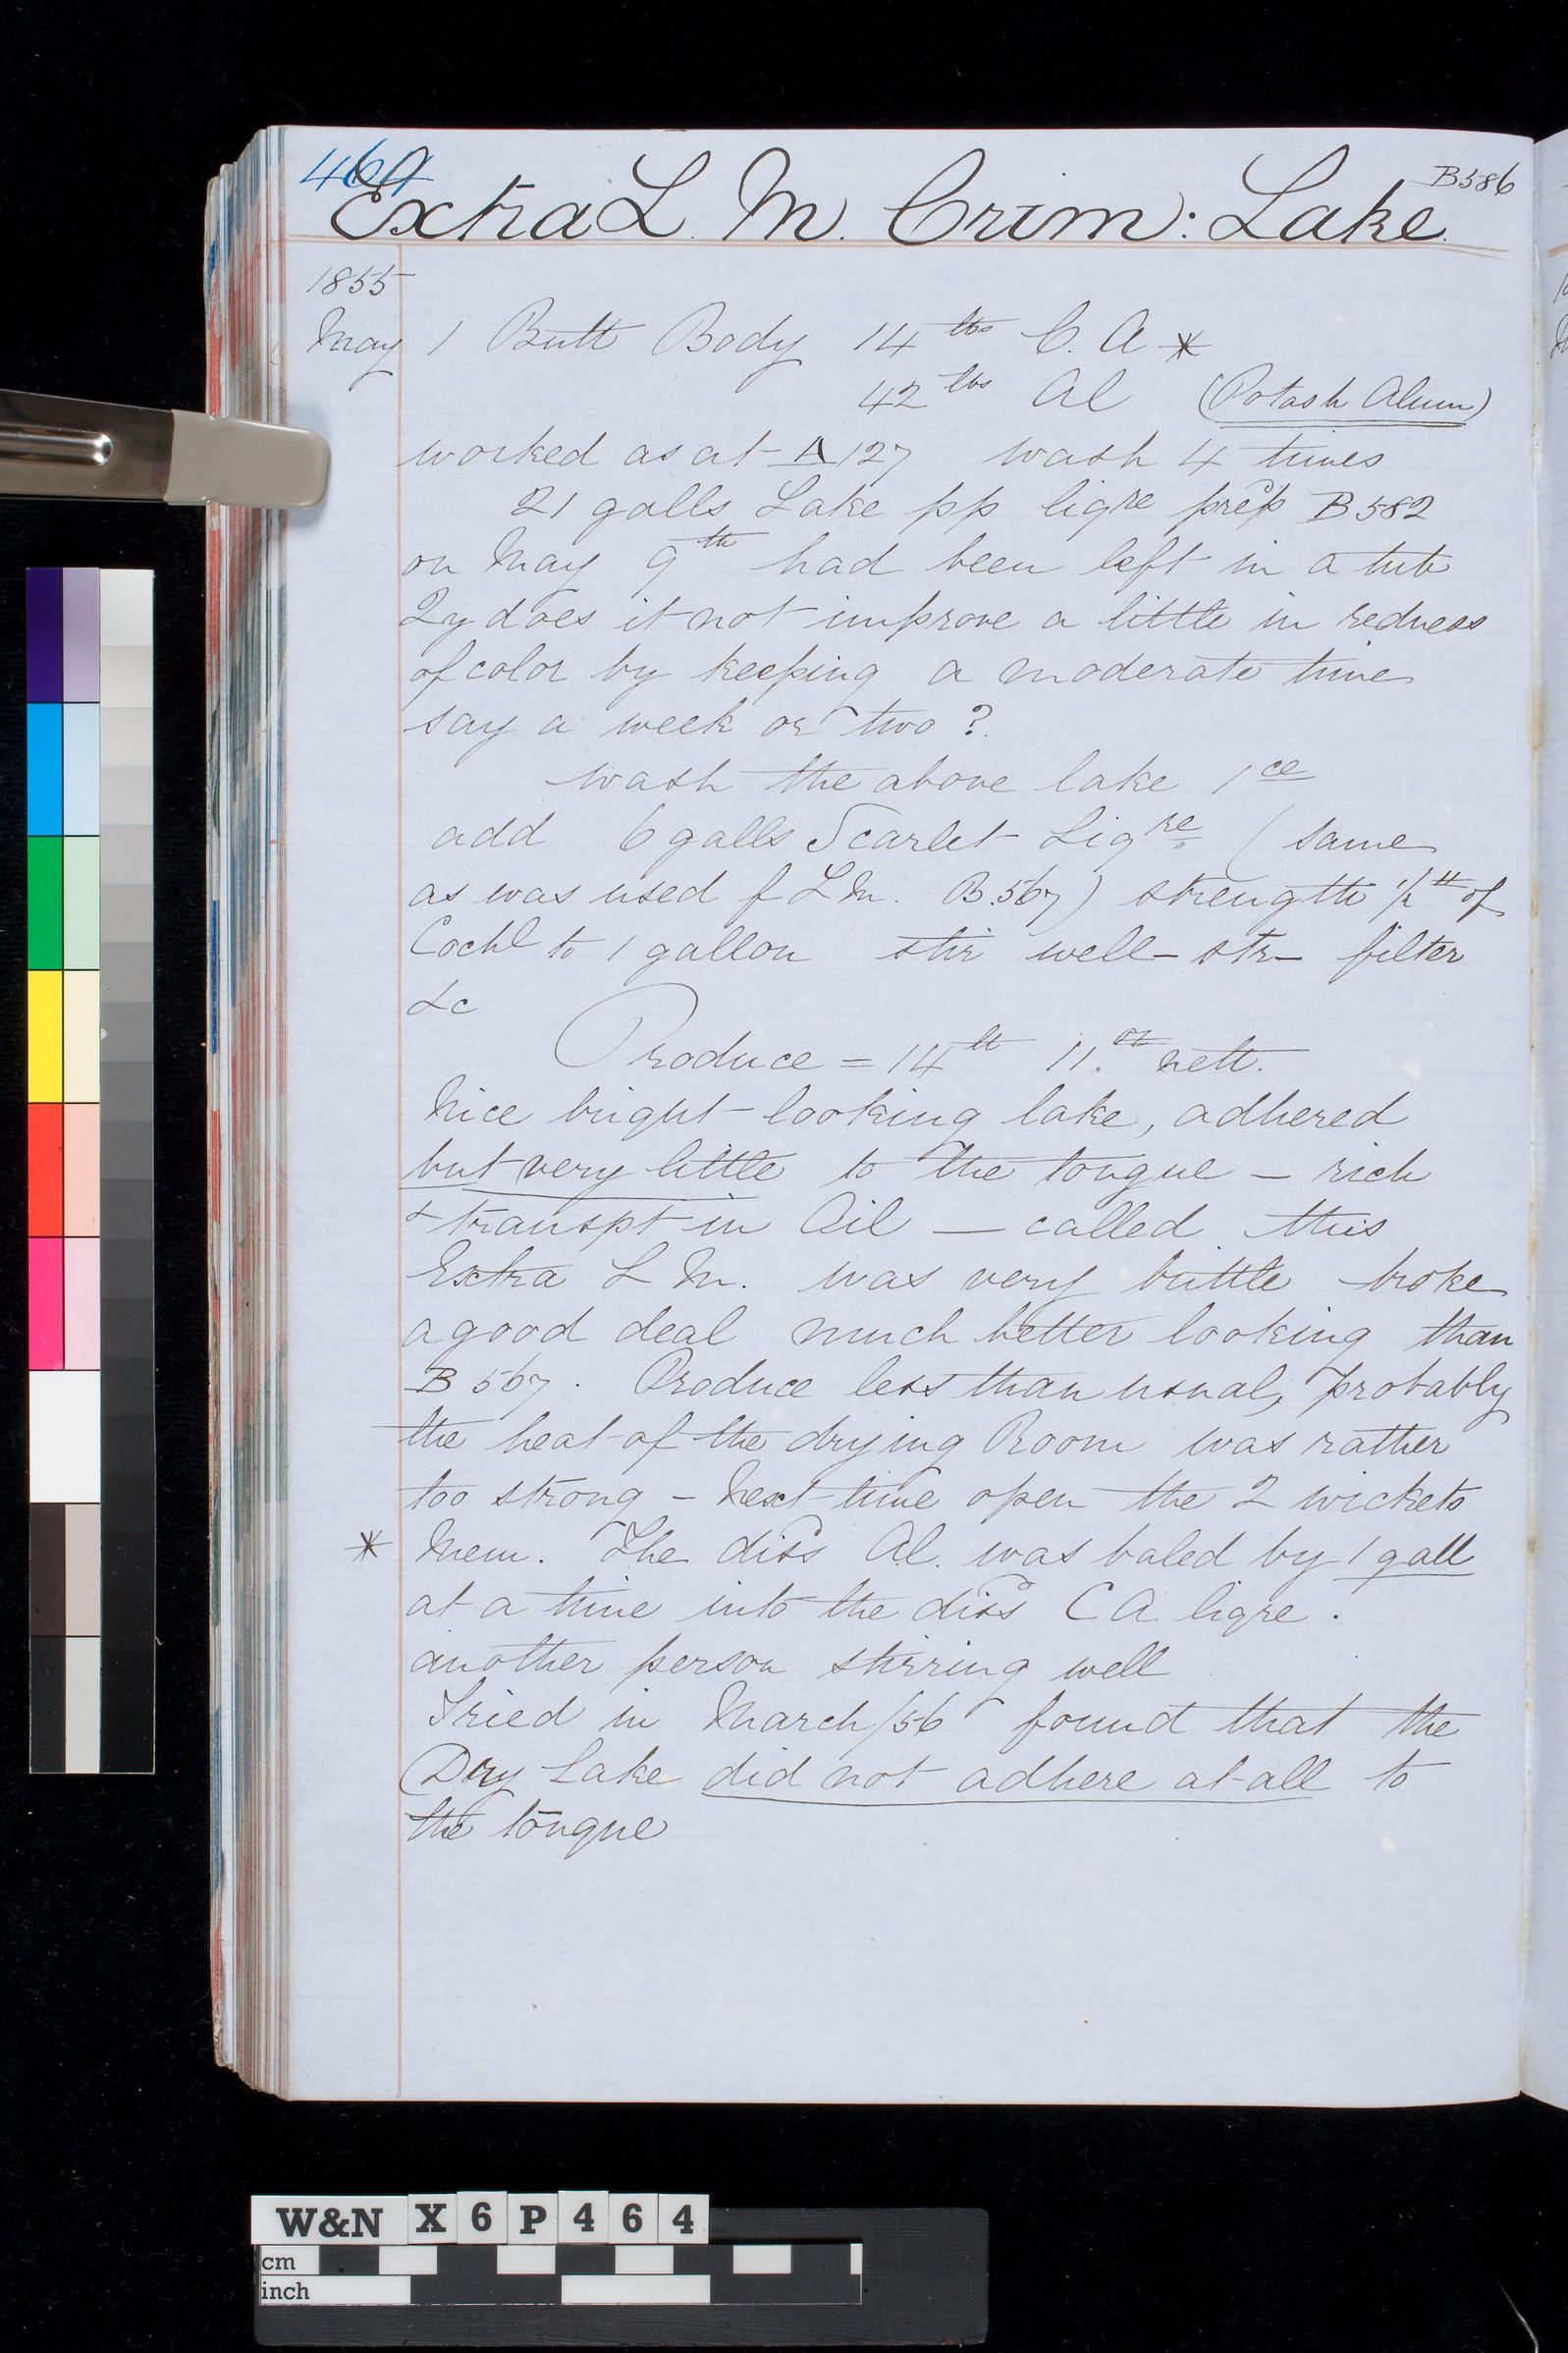 464
B586
Extra L. M. Crim: Lake.
1855
May 1 Butt Body 14 lbs C. A *
42 lbs Al (Potash Alum)
worked as at A127 wash 4 times
21 galls Lake pp liqre prep B582
on May 9th had been left in a tub
Qy does it not improve a little in redness
of color by keeping a moderate time
say a week or two?
wash the above lake 1ce
add 6 galls Scarlet Liqre (same
as was used f LM. B.567) strength of
Cochl to 1 gallon stir well - str - filter
&c
Produce = 14 lb 11. oz nett.
Nice bright looking lake, adhered
but very little to the tongue - rich
& transpt in Oil - called this
Extra L M. was very brittle broke
a good deal much better looking than
B 567. Produce less than usual, probably
the heat of the drying Room was rather
too strong - Next time open the 2 wickets
* Mem. The diss Al. was baled by 1 gall
at a time into the diss C A liqre.
another person stirring well
Tried in March/56 found that the
Dry Lake did not adhere at all to
the tongue
W&N X 6 P 4 6 4
cm
inch